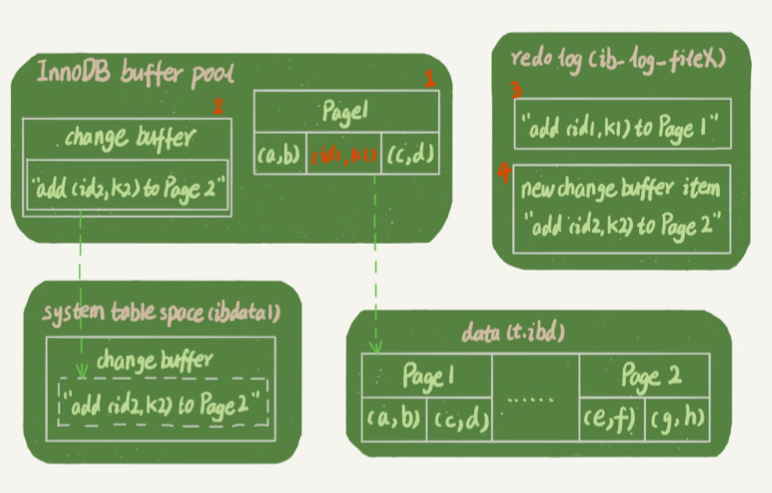 InnoDB buffer pool
1
Page1
(a,b)
(id1,k1)
(c,d)
2
change buffer
"add (id2,k2) to Page 2"
redo log (ib_log_fileX)
3
"add (id1,k1) to Page 1"
4
new change buffer item
"add (id2,k2) to Page 2"
system table space (ibdata1)
change buffer
"add (id2,k2) to Page 2"
data (t.ibd)
Page 1
(a,b)
(c,d)
......
Page 2
(e,f)
(g,h)